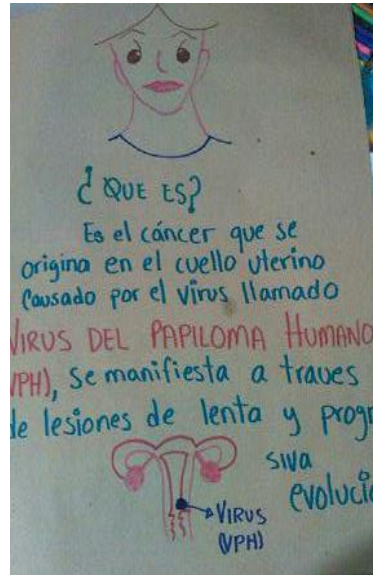 ¿ QUE ES?
Es el cáncer que se
origina en el cuello uterino
causado por el virus llamado
VIRUS DEL PAPILOMA HUMANO
VPH), se manifiesta a traves
de lesiones de lenta y progr
siva
evolució
VIRUS
(VPH)